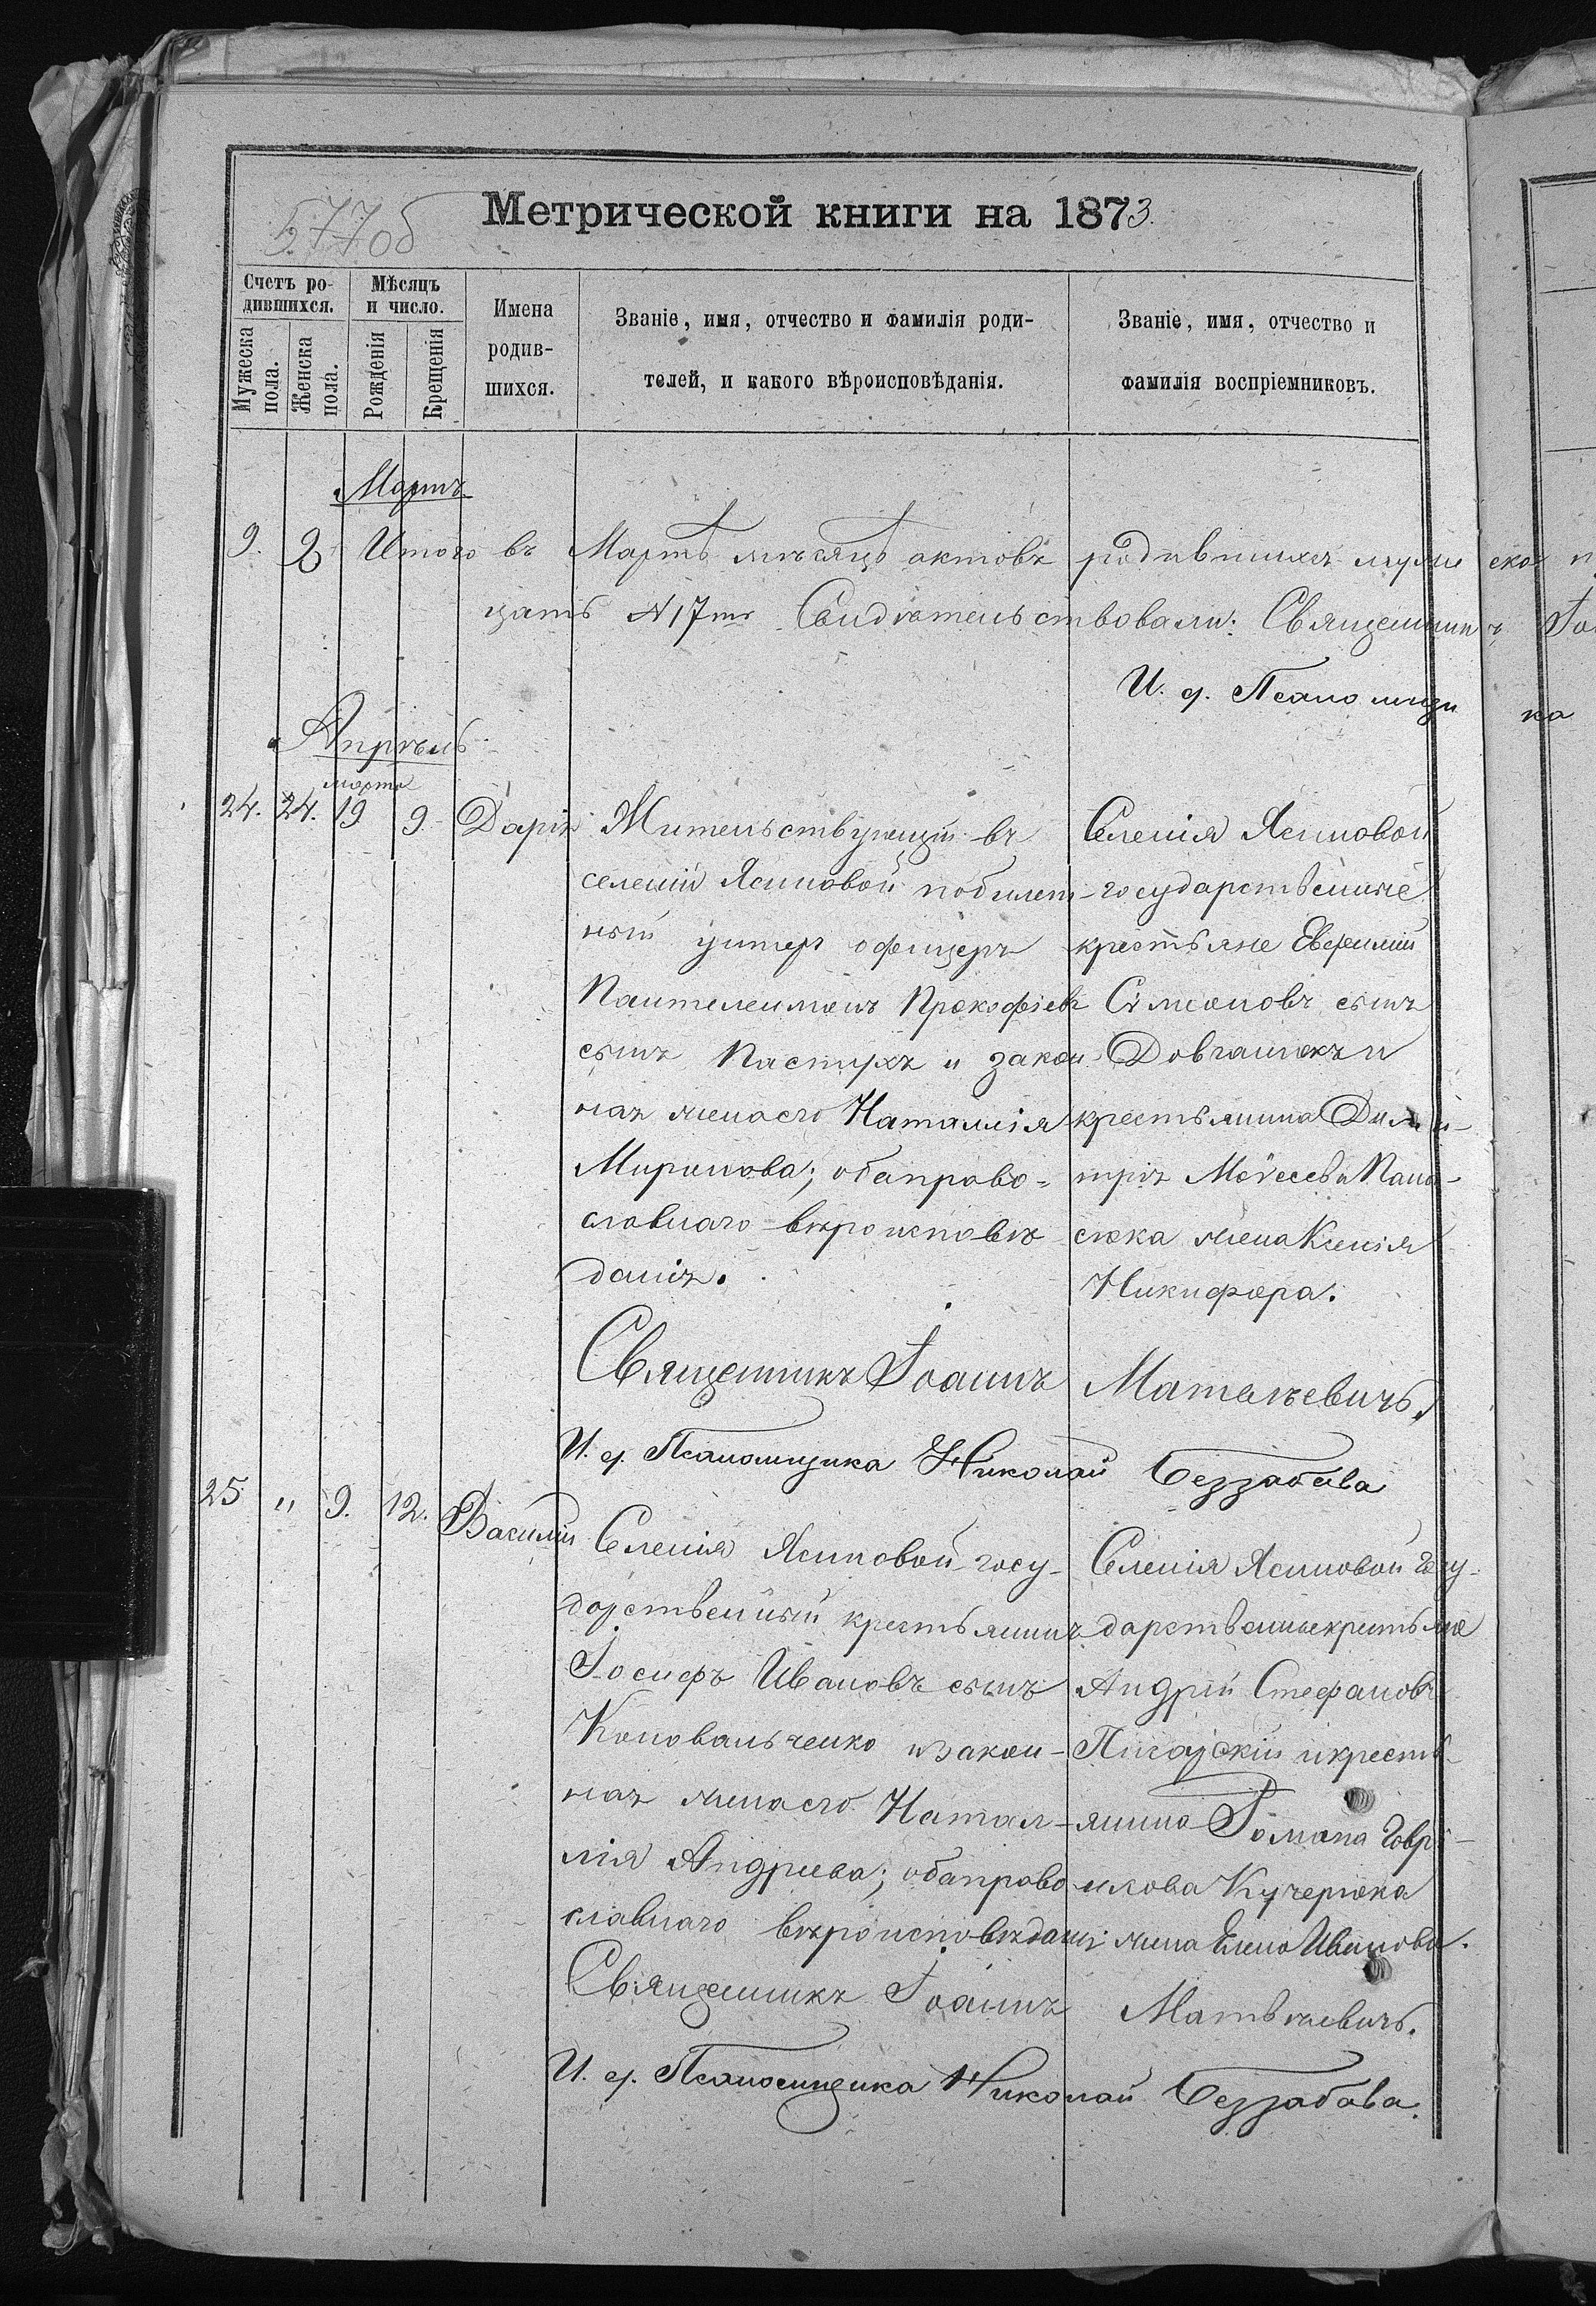 577об
Метрической книги на 1873.
Счетъ ро-
дившихся.
Мѣсяцъ
и число.
Имена
родив-
шихся.
Званіе, имя, отчество и фамилія роди-
телей, и какого вѣроисповѣданія.
Званіе, имя, отчество и
фамилія воспріемниковъ.
Мужеска
пола.
Женска
пола.
Рожденія
Крещенія
Мартъ
9. 8 Итого въ Мартѣ мѣсяцѣ актовъ родившихся муже ска п
цать №17ть Свидѣтельствовали: Священникъ Іо
И. д. Псаломщи ка
Апрѣль
марта
24. 24. 19 9. Дарія
Жительствующій въ
селеніи Ясиновой побилет-
ный унтеръ офицеръ
Пантелеимонъ Прокофіевъ
сынъ Пастухъ и закон-
ная жена его Наталлія
Миронова; оба право-
славнаго вѣроисповѣ
данія.
Селенія Ясиновой
государственные
крестьяне Евфимій
Симоновъ сынъ
Довганюкъ и
крестьянина Дими-
трія Моѵсеева Пана-
сюка жена Ксенія
Никифора.
Священникъ Іоаннъ Матвѣевичъ.
И. д. Псаломщика Николай Беззабава
25 " 9. 12. Василій
Селенія Ясиновой госу-
дарственный крестьянинъ
Іосифъ Ивановъ сынъ
Коновальченко и закон-
ная жена его Натал-
лія Андреева; оба право
славнаго вѣроисповѣданія
Селенія Ясиновой госу-
дарственные крестьяне
Андрій Стефановъ
и крестьь-
янина Романа Гаврі-
илова Кучерюка
жена Елена Иванова.
Священникъ Іоаннъ Матвѣевичъ.
И. д. Псаломщика Николай Беззабава.